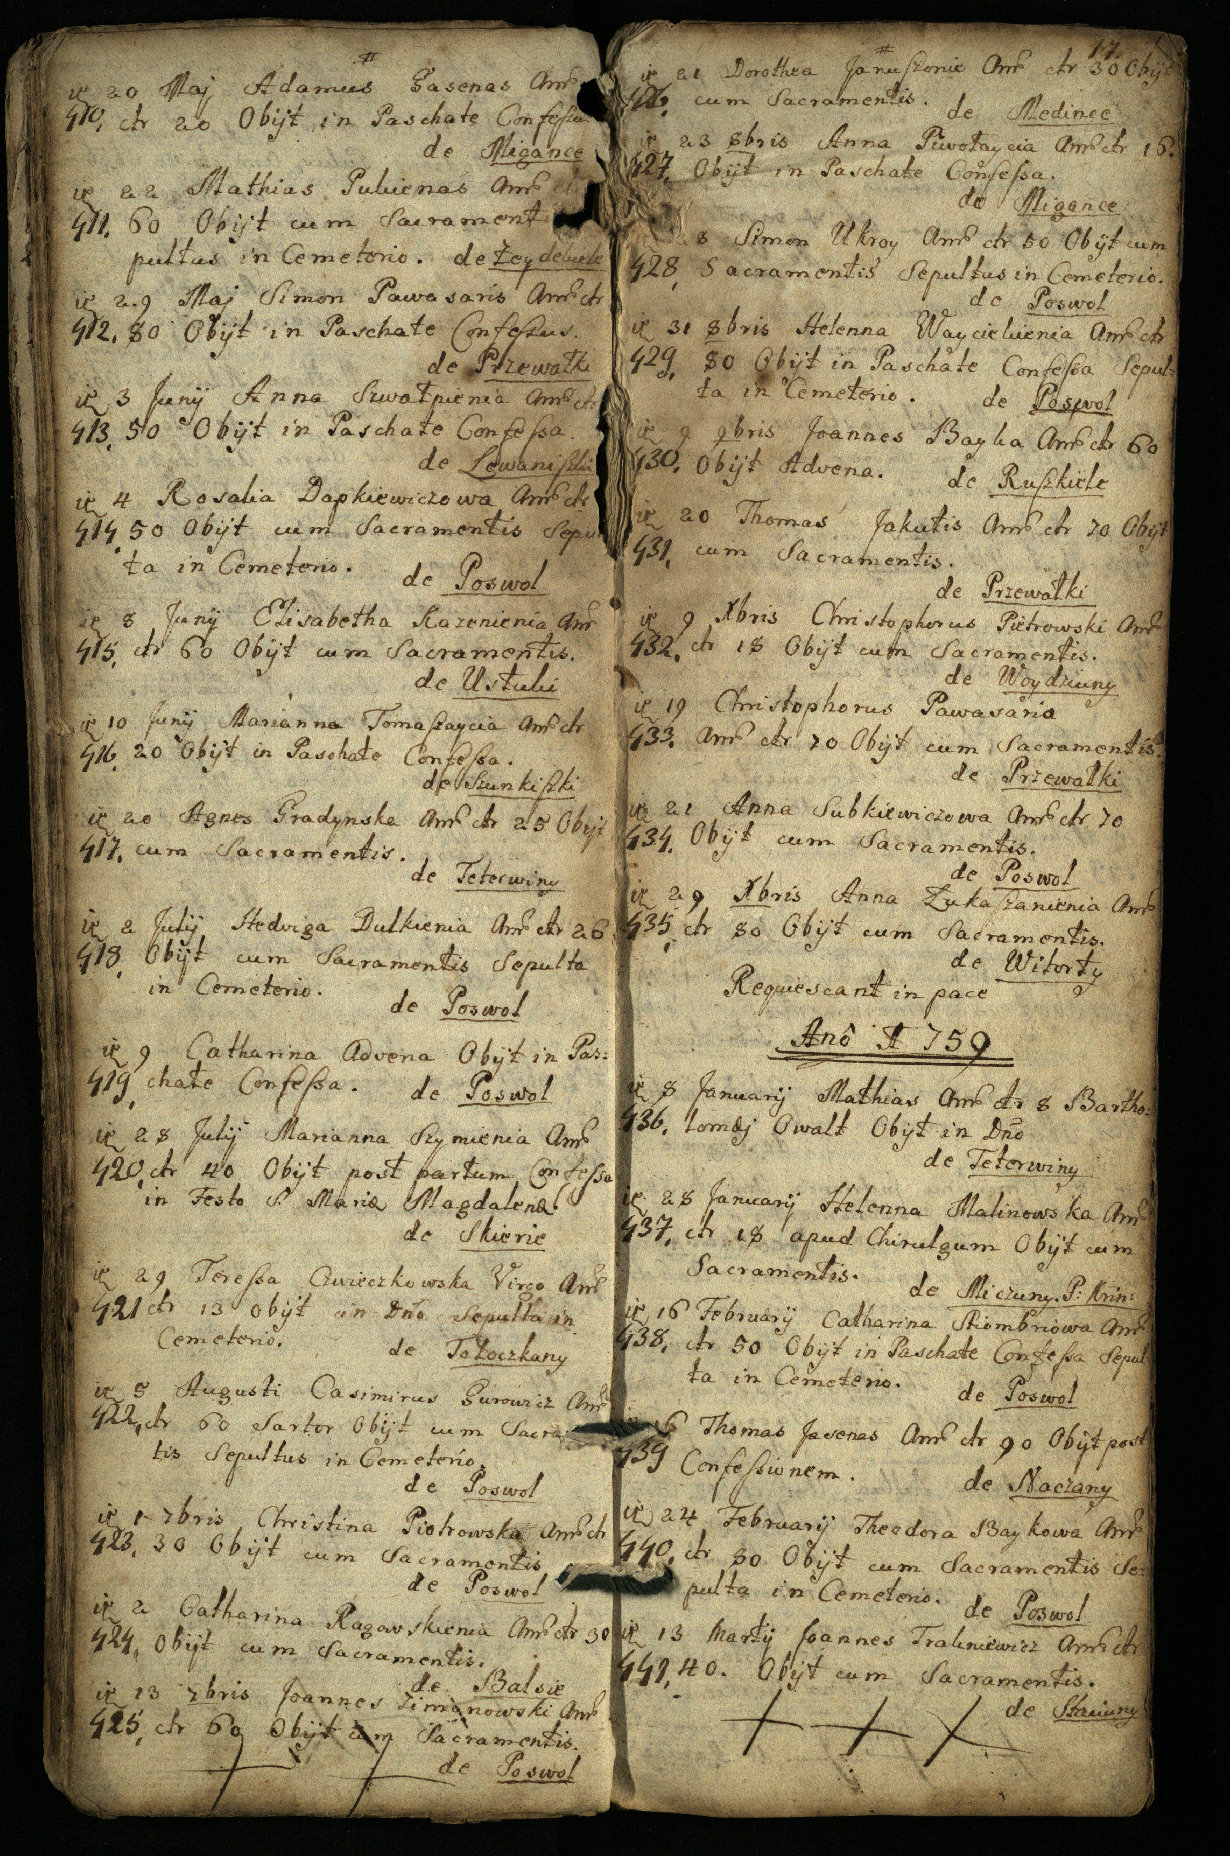 #
20 Maj Adamus Gasenas Ann
410, ctr 20 Obijt in Paschate Confessu
de Migance
22 Mathias Pukienas Ann ctr
411. 60 Obijt cum Sacrament
pultus in Cemeterio. de
29 Maj Simon Pawasaris Ann ctr
412. 80 Obijt in Paschate Confessus.
de Przewalki
3 Junij Anna Szwatpienia Ann ctr
413, 50 Obijt in Paschate Confessa.
de Lewaniszki
4 Rosalia Dapkiewiczowa Ann ctr
414, 50 Obijt cum Sacramentis Sepul
ta in Cemeterio. de Poswol
8 Junij Elisabetha Kazenienia Ann
415, ctr 60 Obijt cum Sacramentis.
de Ustuki
10 Junij Marianna Tomaszaycia Ann ctr
416, 20 Obijt in Paschate Confessa.
de Szunkiszki
20 Agnes Gradynska Ann ctr 25 Obijt
417, cum Sacramentis.
de Teterwiny
2 Julij Hedviga Dulkienia Ann ctr 26
418, Obijt cum Sacramentis Sepulta
in Cemeterio. de Poswol
9 Catharina Advena Obijt in Pas:
419, chate Confessa. de Poswol
28 Julij Marianna Szymienia Ann
420, ctr 40 Obijt post partum Confessa
in Festo S. Mariæ Magdalenæ.
de Skierie
29 Teressa Cwieczkowska Virgo Ann
421 ctr 13 Obijt in Dno Sepulta in
Cemeterio. de Toloczkany
5 Augusti Casimirus Gurowicz Ann
422, ctr 60 Sartor Obijt cum Sacra
tis Sepultus in Cemeterio.
de Poswol
1 7bris Christina Piotrowska Ann ctr
423, 30 Obijt cum Sacramentis
de Poswol
2 Catharina Ragowskienia Ann ctr 30
424, Obijt cum Sacramentis.
de Balsie
13 7bris Joannes Zimonowski Ann
425, ctr 60 Obijt cum Sacramentis.
de Poswol
17.
#
21 Dorothea Januszonie Ann ctr 30 Obijt
426, cum Sacramentis.
de Medince
23 8bris Anna Piwotaycia Ann ctr 16.
427, Obijt in Paschate Confessa.
de Migance
8 Simon Ukroy Ann ctr 50 Obijt cum
428, Sacramentis Sepultus in Cemeterio.
de Poswol
31 8bris Helenna Waycielienia Ann ctr
429, 80 Obijt in Paschate Confessa Sepul:
ta in Cemeterio. de Poswol
9 9bris Joannes Bayka Ann ctr 60
430, Obijt Advena. de Ruszkiele
20 Thomas Jakutis Ann ctr 70 Obijt
431, cum Sacramentis.
de Przewalki
9 Xbris Christophorus Pietrowski Ann
432, ctr 18 Obijt cum Sacramentis.
de Woydziuny
19 Christophorus Pawasaria
433, Ann ctr 70 Obijt cum Sacramentis.
de Przewalki
21 Anna Subkiewiczowa Ann ctr 70
434, Obijt cum Sacramentis.
de Poswol
29 Xbris Anna Łukaszanienia Ann
435, ctr 80 Obijt cum Sacramentis.
de Witorty
Requiescant in pace
Anô 1759
8 Januarij Mathias Ann ctr 8 Bartho:
436, lomæj Owalt Obijt in Dño
de Teterwiny
28 Januarij Helenna Malinowska Ann
437, ctr 18 apud Chirulgum Obijt cum
Sacramentis.
de Miczuny. P: Krin:
16 February Catharina Skombriowa Ann
438, ctr 50 Obijt in Paschate Confessa Sepul
ta in Cemeterio. de Poswol
16 Thomas Jasenas Ann ctr 90 Obijt post
439 Confessionem. de Naczany
24 Februarij Theodora Baykowa Ann
440, ctr 80 Obijt cum Sacramentis Se:
pulta in Cemeterio. de Poswol
13 Martij Joannes Trakiniewicz Ann ctr
441, 40. Obijt cum Sacramentis.
de Staiuny